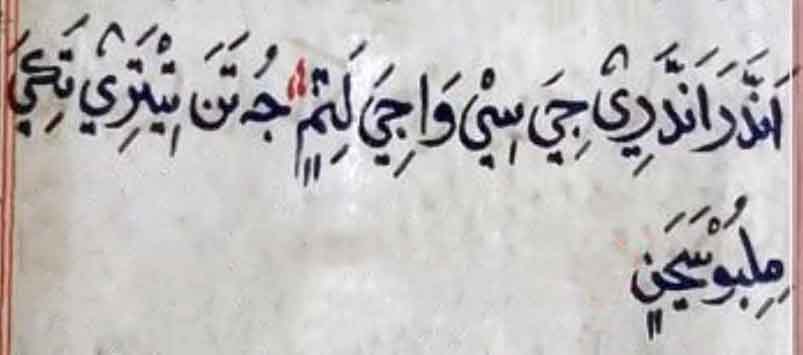 اَنَّدَرَانَّدَرِىْ جِيَ سِيْ وَاجِيَ لَتِمٍ جُ تَنَ تِيْتَرِيْ تَكِيَ
مِلِبُوْسَيَجَنٍ